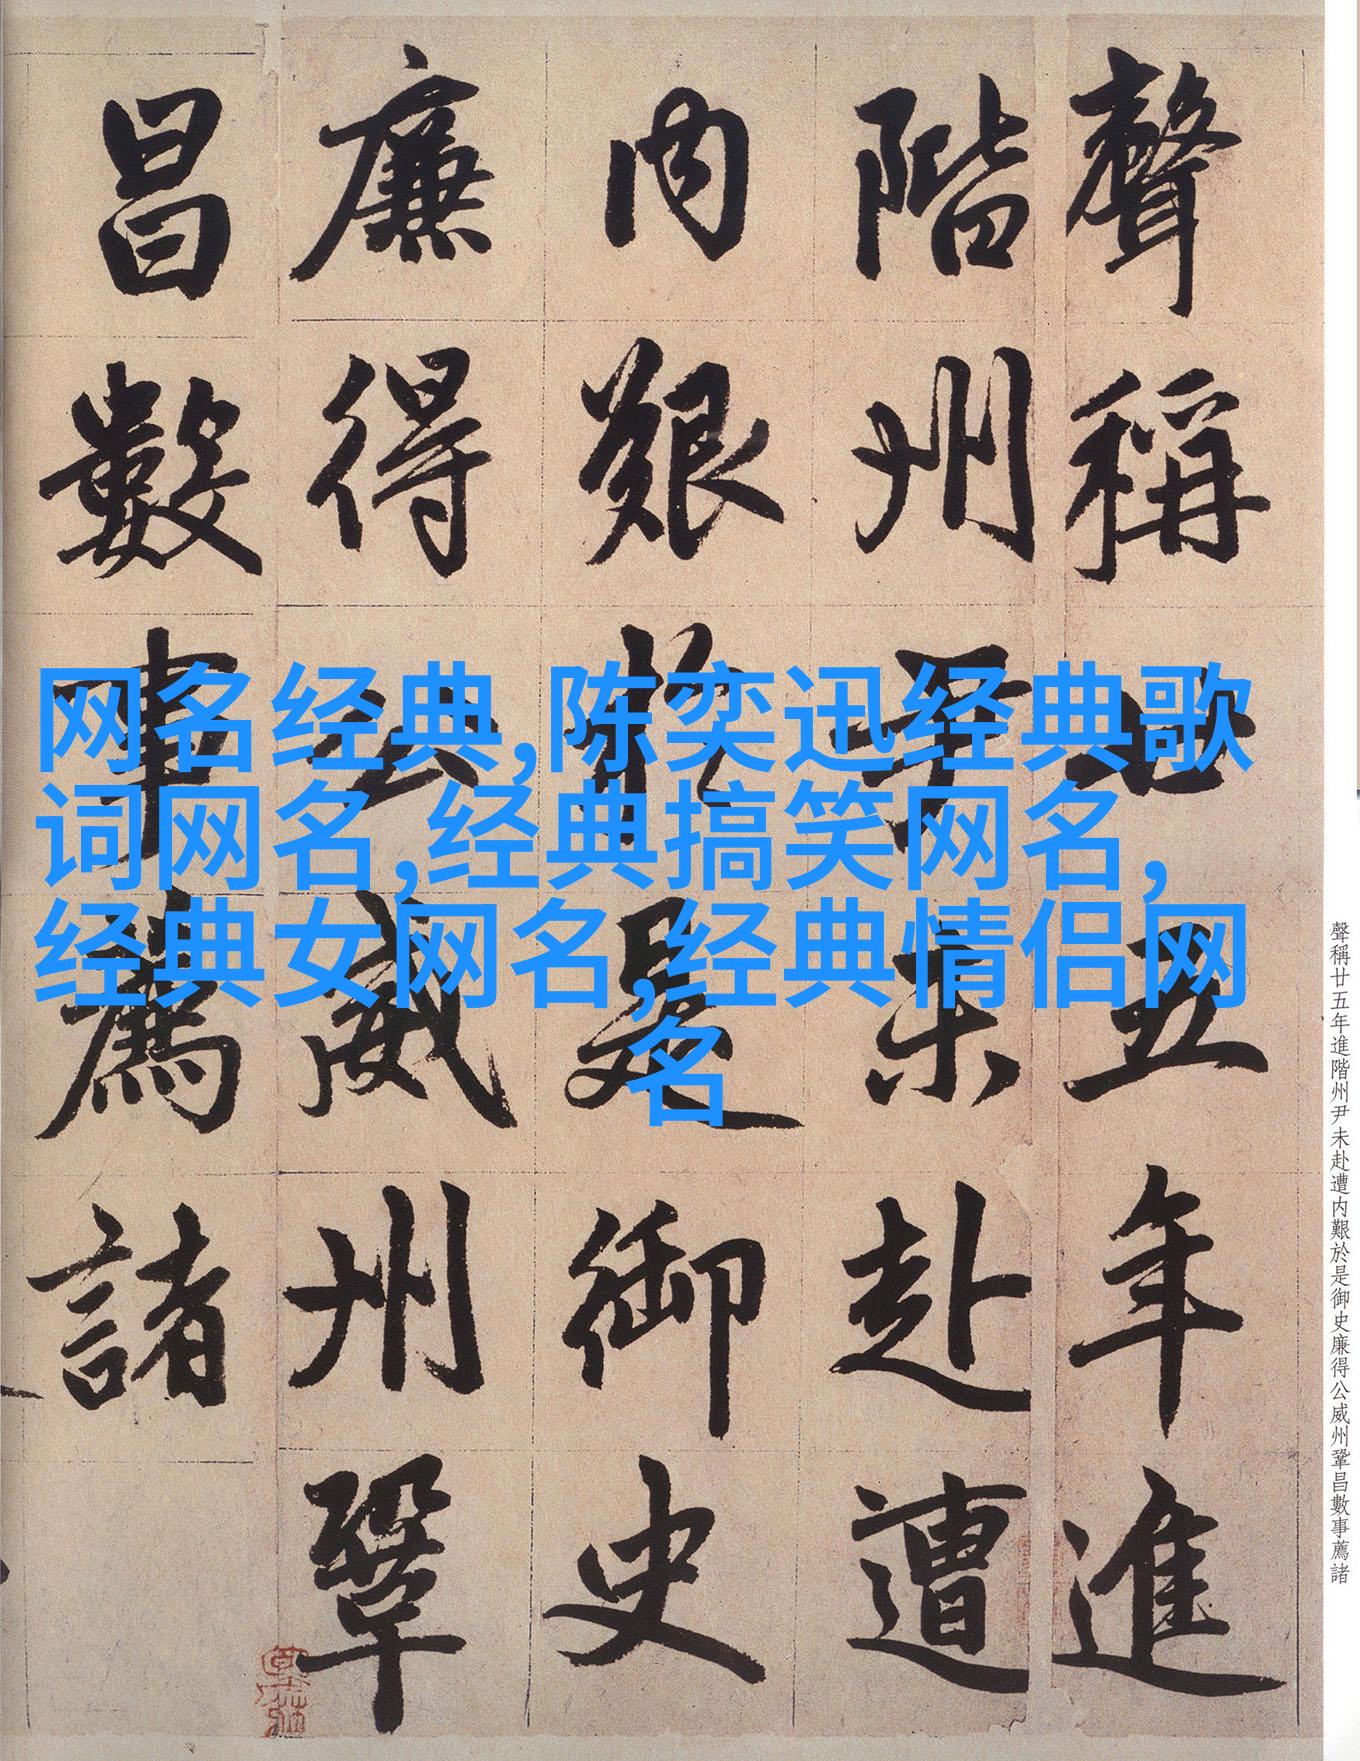 网名经典,陈奕迅经典歌
词网名,经典搞笑网名,
经典女网名,经典情侣网
名
聲稱廿五年進
階州尹未赴遭
内艱於是御史
廉得公威州鞏
昌數事薦諸
聲稱廿五年進階州尹未赴遭内艱於是御史廉得公威州鞏昌數事薦諸